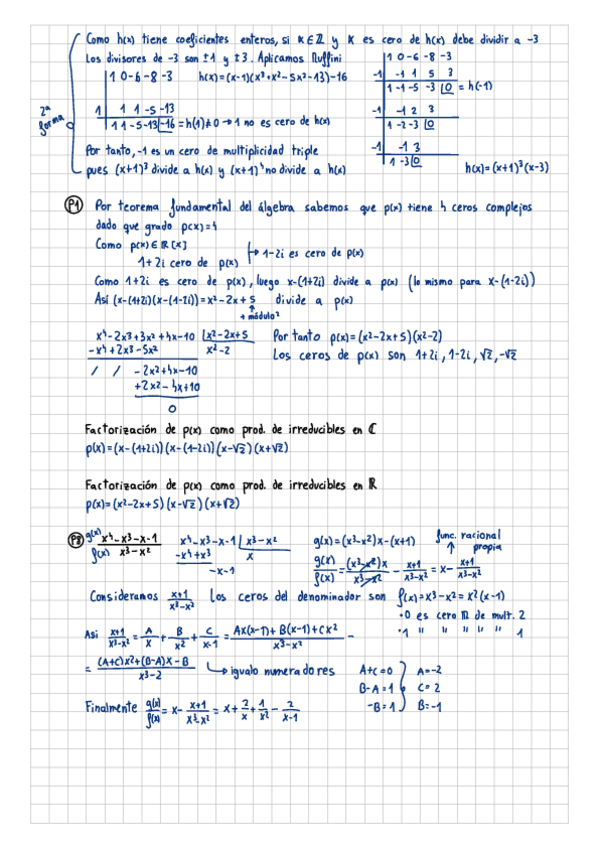 Como h(x) tiene coeficientes enteros, si α∈ℤ y α es cero de h(x) debe dividir a -3
Los divisores de -3 son ±1 y ±3. Aplicamos Ruffini
2ª forma
1 0 -6 -8 -3
h(x)=(x-1)(x³+x²-5x-13)-16
1 | 1 1 -5 -13
1 1 -5 -13 |-16 = h(1)≠0 → 1 no es cero de h(x)
Por tanto, -1 es un cero de multiplicidad triple
pues (x+1)³ divide a h(x) y (x+1)⁴ no divide a h(x)
1 0 -6 -8 -3
-1 | -1 1 5 3
1 -1 -5 -3 |0 = h(-1)
-1 | -1 2 3
1 -2 -3 |0
-1 | -1 3
1 -3 |0
h(x)=(x+1)³(x-3)
P1 Por teorema fundamental del álgebra sabemos que p(x) tiene 4 ceros complejos
dado que grado p(x)=4
Como p(x)∈ℝ[x]
1+2i cero de p(x)
→ 1-2i es cero de p(x)
Como 1+2i es cero de p(x), luego x-(1+2i) divide a p(x) (lo mismo para x-(1-2i))
Así (x-(1+2i)(x-(1-2i))=x²-2x+5 divide a p(x)
+ módulo²
x⁴-2x³+3x²+4x-10 |x²-2x+5
-x⁴+2x³-5x² x²-2
/ / -2x²+4x-10
+2x²-4x+10
0
Por tanto p(x)=(x²-2x+5)(x²-2)
Los ceros de p(x) son 1+2i, 1-2i, √2, -√2
Factorización de p(x) como prod. de irreducibles en ℂ
p(x)=(x-(1+2i))(x-(1-2i))(x-√2)(x+√2)
Factorización de p(x) como prod. de irreducibles en ℝ
p(x)=(x²-2x+5)(x-√2)(x+√2)
P2 g(x) x⁴-x³-x-1
f(x) x³-x²
x⁴-x³-x-1 |x³-x²
-x⁴+x³ x
-x-1
g(x)=(x³-x²)x-(x+1)
func. racional propia
g(x)/f(x)=(x³-x²)x/x³-x² - x+1/x³-x² = x- x+1/x³-x²
Consideramos x+1/x³-x² Los ceros del denominador son f(x)=x³-x²=x²(x-1)
·0 es cero ℝ de mult. 2
·1 " " " " " 1
Así x+1/x³-x² = A/x + B/x² + C/x-1 = Ax(x-1)+B(x-1)+Cx²/x³-x² =
= (A+C)x²+(B-A)x-B/x³-2 ↳ igualo numeradores
A+C=0 A=-2
B-A=1 C=2
-B=1 B=-1
Finalmente g(x)/f(x) = x- x+1/x³-x² = x+ 2/x + 1/x² - 2/x-1